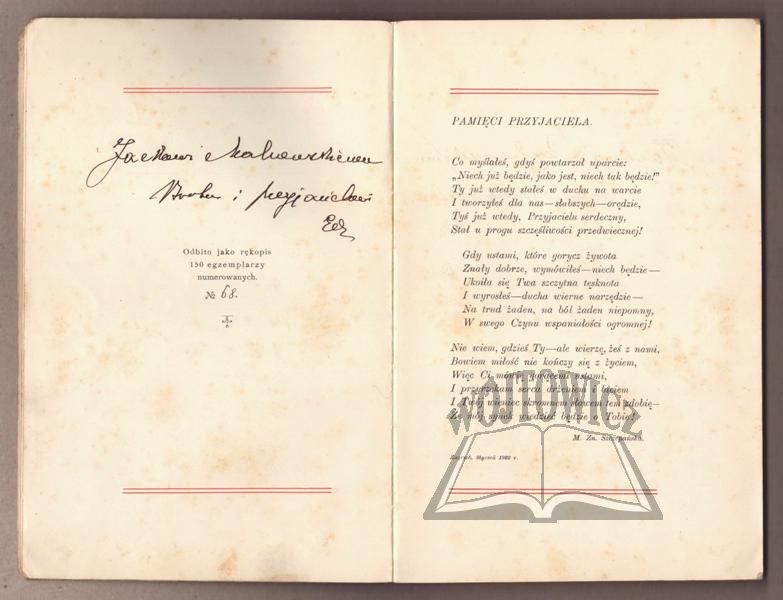 Jackowi Malczewskiemu
Bratu i przyjacielowi
Edz
Odbito jako rękopis
150 egzemplarzy
numerowanych.
№ 68.
PAMIĘCI PRZYJACIELA.
Co myślałeś, gdyś powtarzał uparcie:
„Niech już będzie, jako jest, niech tak będzie!"
Ty już wtedy stałeś w duchu na warcie
I tworzyłeś dla nas—słabszych—orędzie,
Tyś już wtedy, Przyjacielu serdeczny,
Stał u progu szczęśliwości przedwiecznej!
Gdy ustami, które gorycz żywota
Znały dobrze, wymówiłeś—niech będzie—
Ukoiła się Twa szczytna tęsknota
I wyrosłeś—ducha wierne narzędzie—
Na trud żaden, na ból żaden niepomny,
W swego Czynu wspaniałości ogromnej!
Nie wiem, gdzieś Ty—ale wierzę, żeś z nami,
Bowiem miłość nie kończy się z życiem,
Więc Ci mówię gorącemi ustami,
I przyrzekam serca drżeniem i biciem
I Twój wieniec skromnem słowem tem zdobię—
Że mój synek wiedzieć będzie o Tobie!
M. Zn. Szczepańska.
Styczeń 1922 r.
WÓJTOWICZ